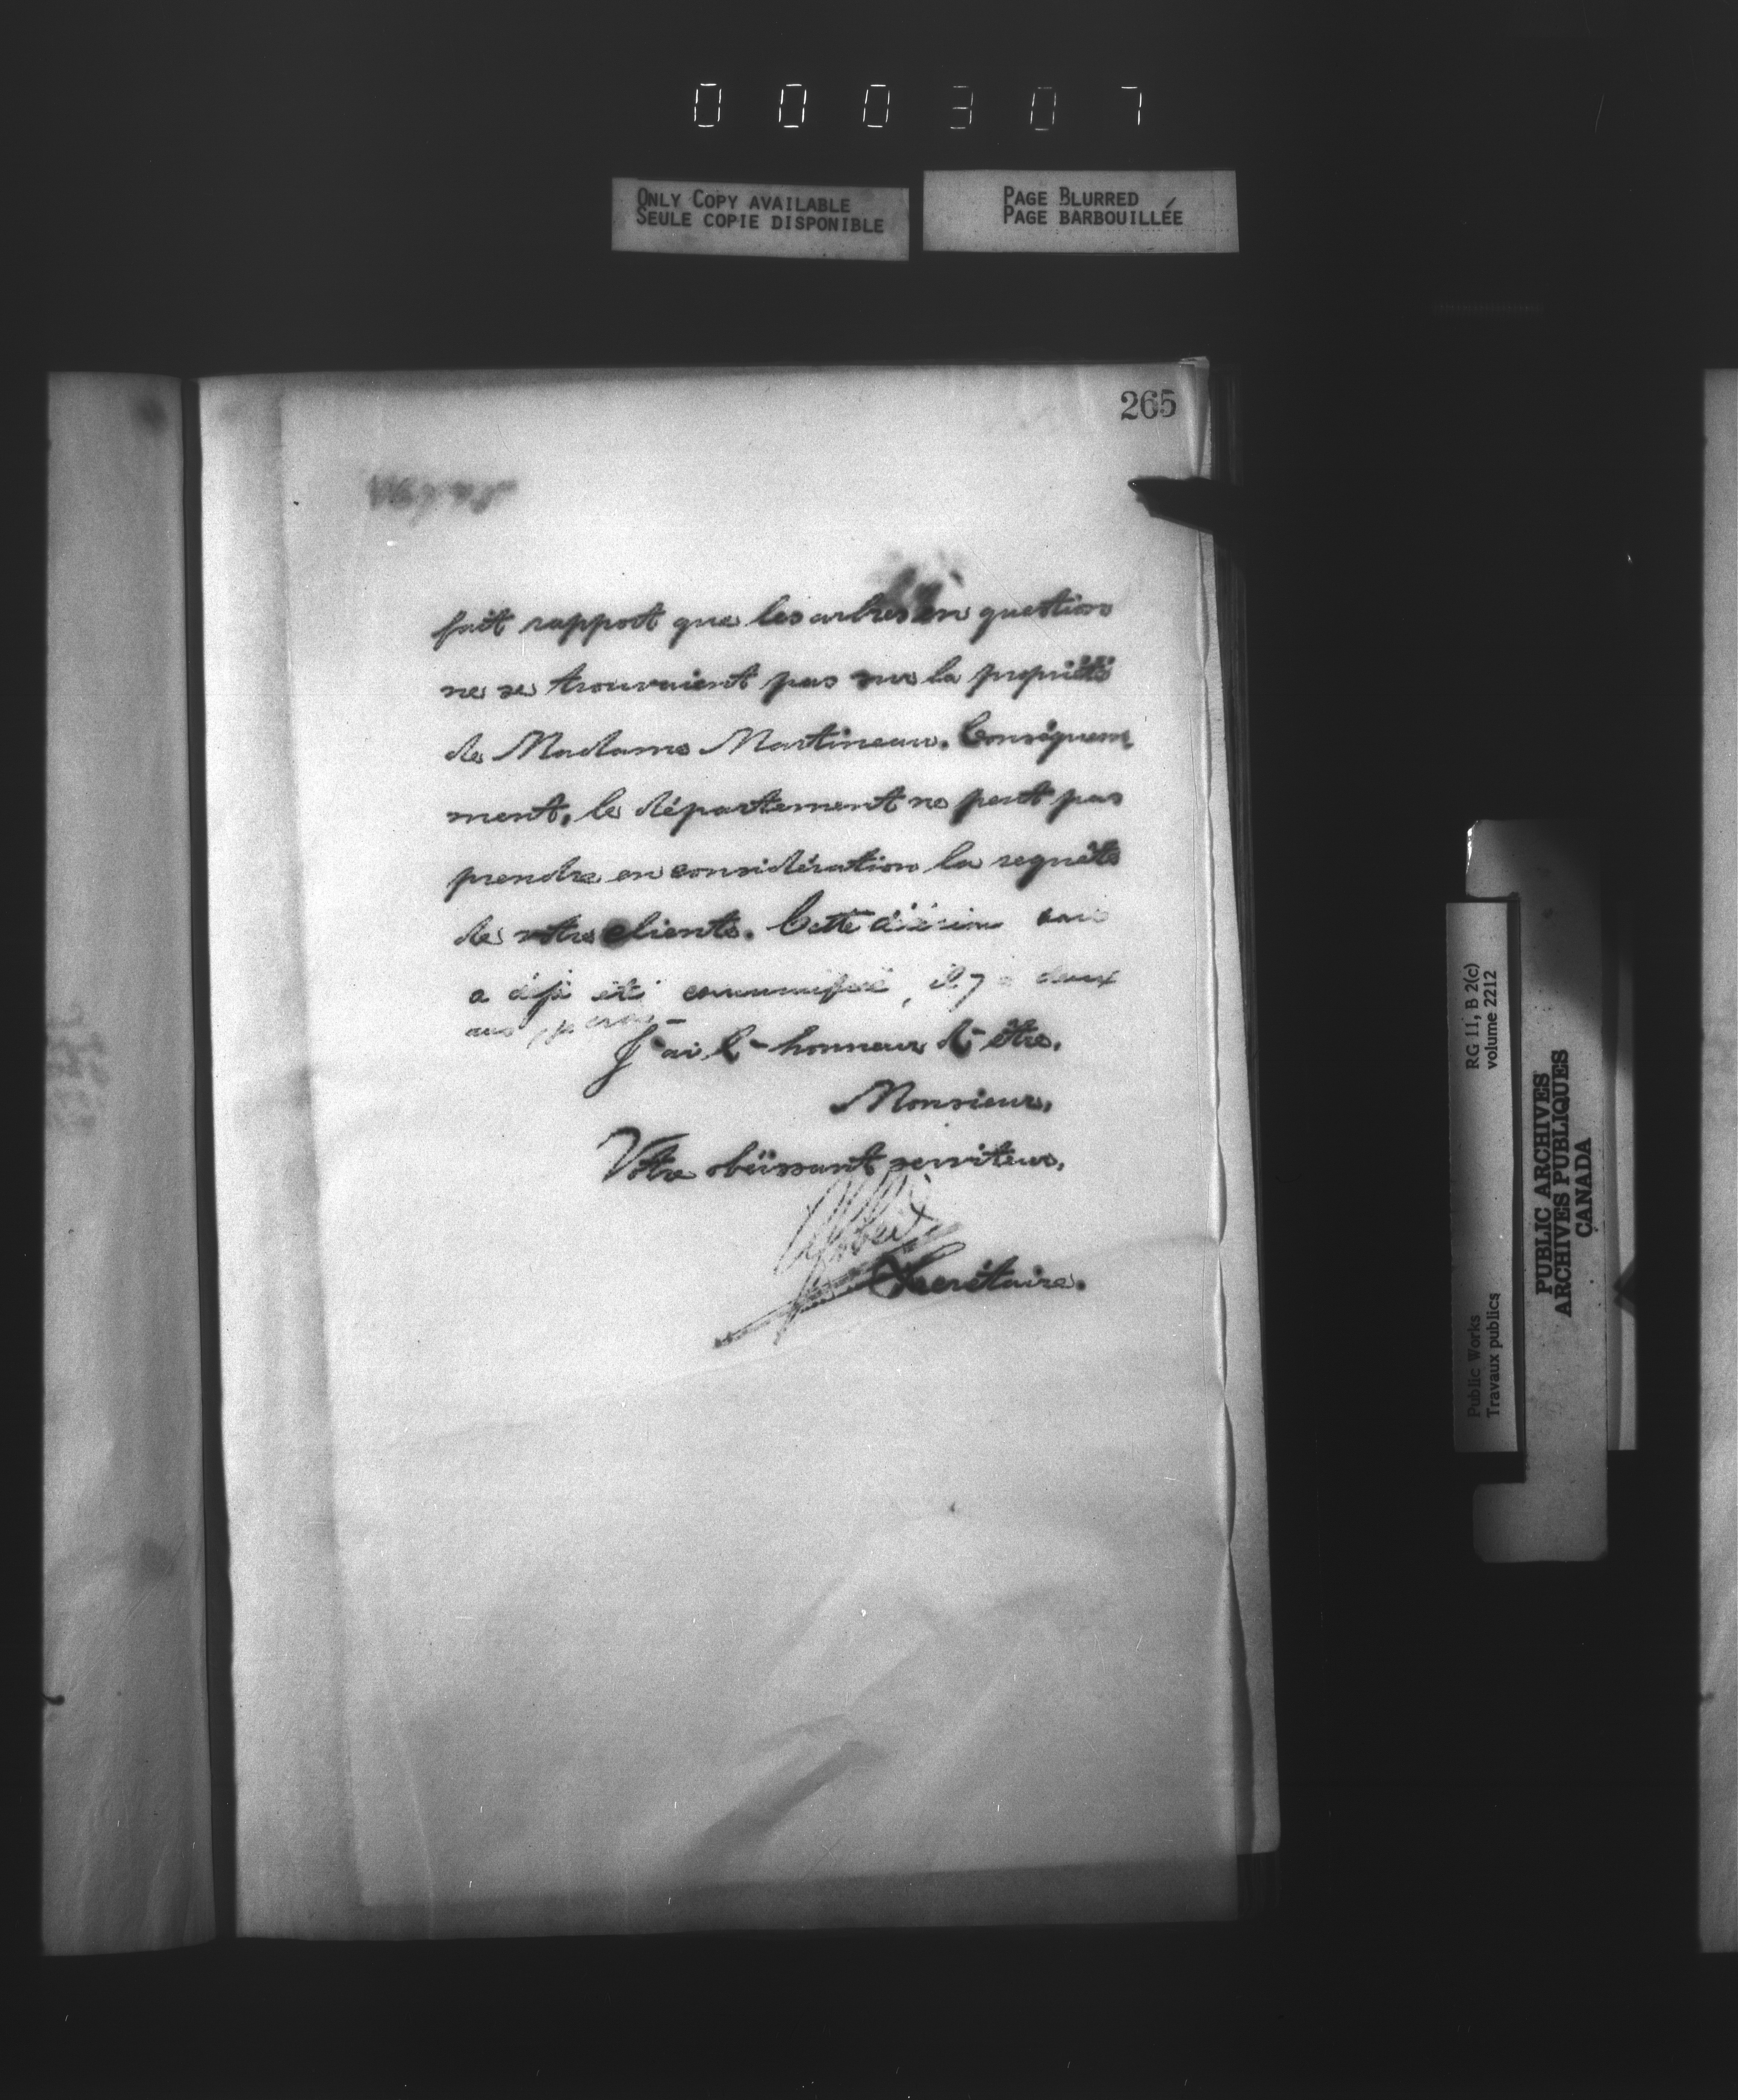 000307
ONLY COPY AVAILABLE
SEULE COPIE DISPONIBLE
PAGE BLURRED
PAGE BARBOUILLÉE
265
fait rapport que les arbres en question
ne se trouvaient pas sur la propriété
de Madame Martineau. Conséquem
ment, le département ne peut pas
prendre en considération la requête
de votre cliente. Cette décision vous
a déjà été communiquée, il y a deux
ans
J'ai l'honneur d'être,
Monsieur,
Votre obéissant serviteur,
Gobeil
Secrétaire.
RG 11, B 2(c)
volume 2212
Public Works
Travaux publics
PUBLIC ARCHIVES
ARCHIVES PUBLIQUES
CANADA